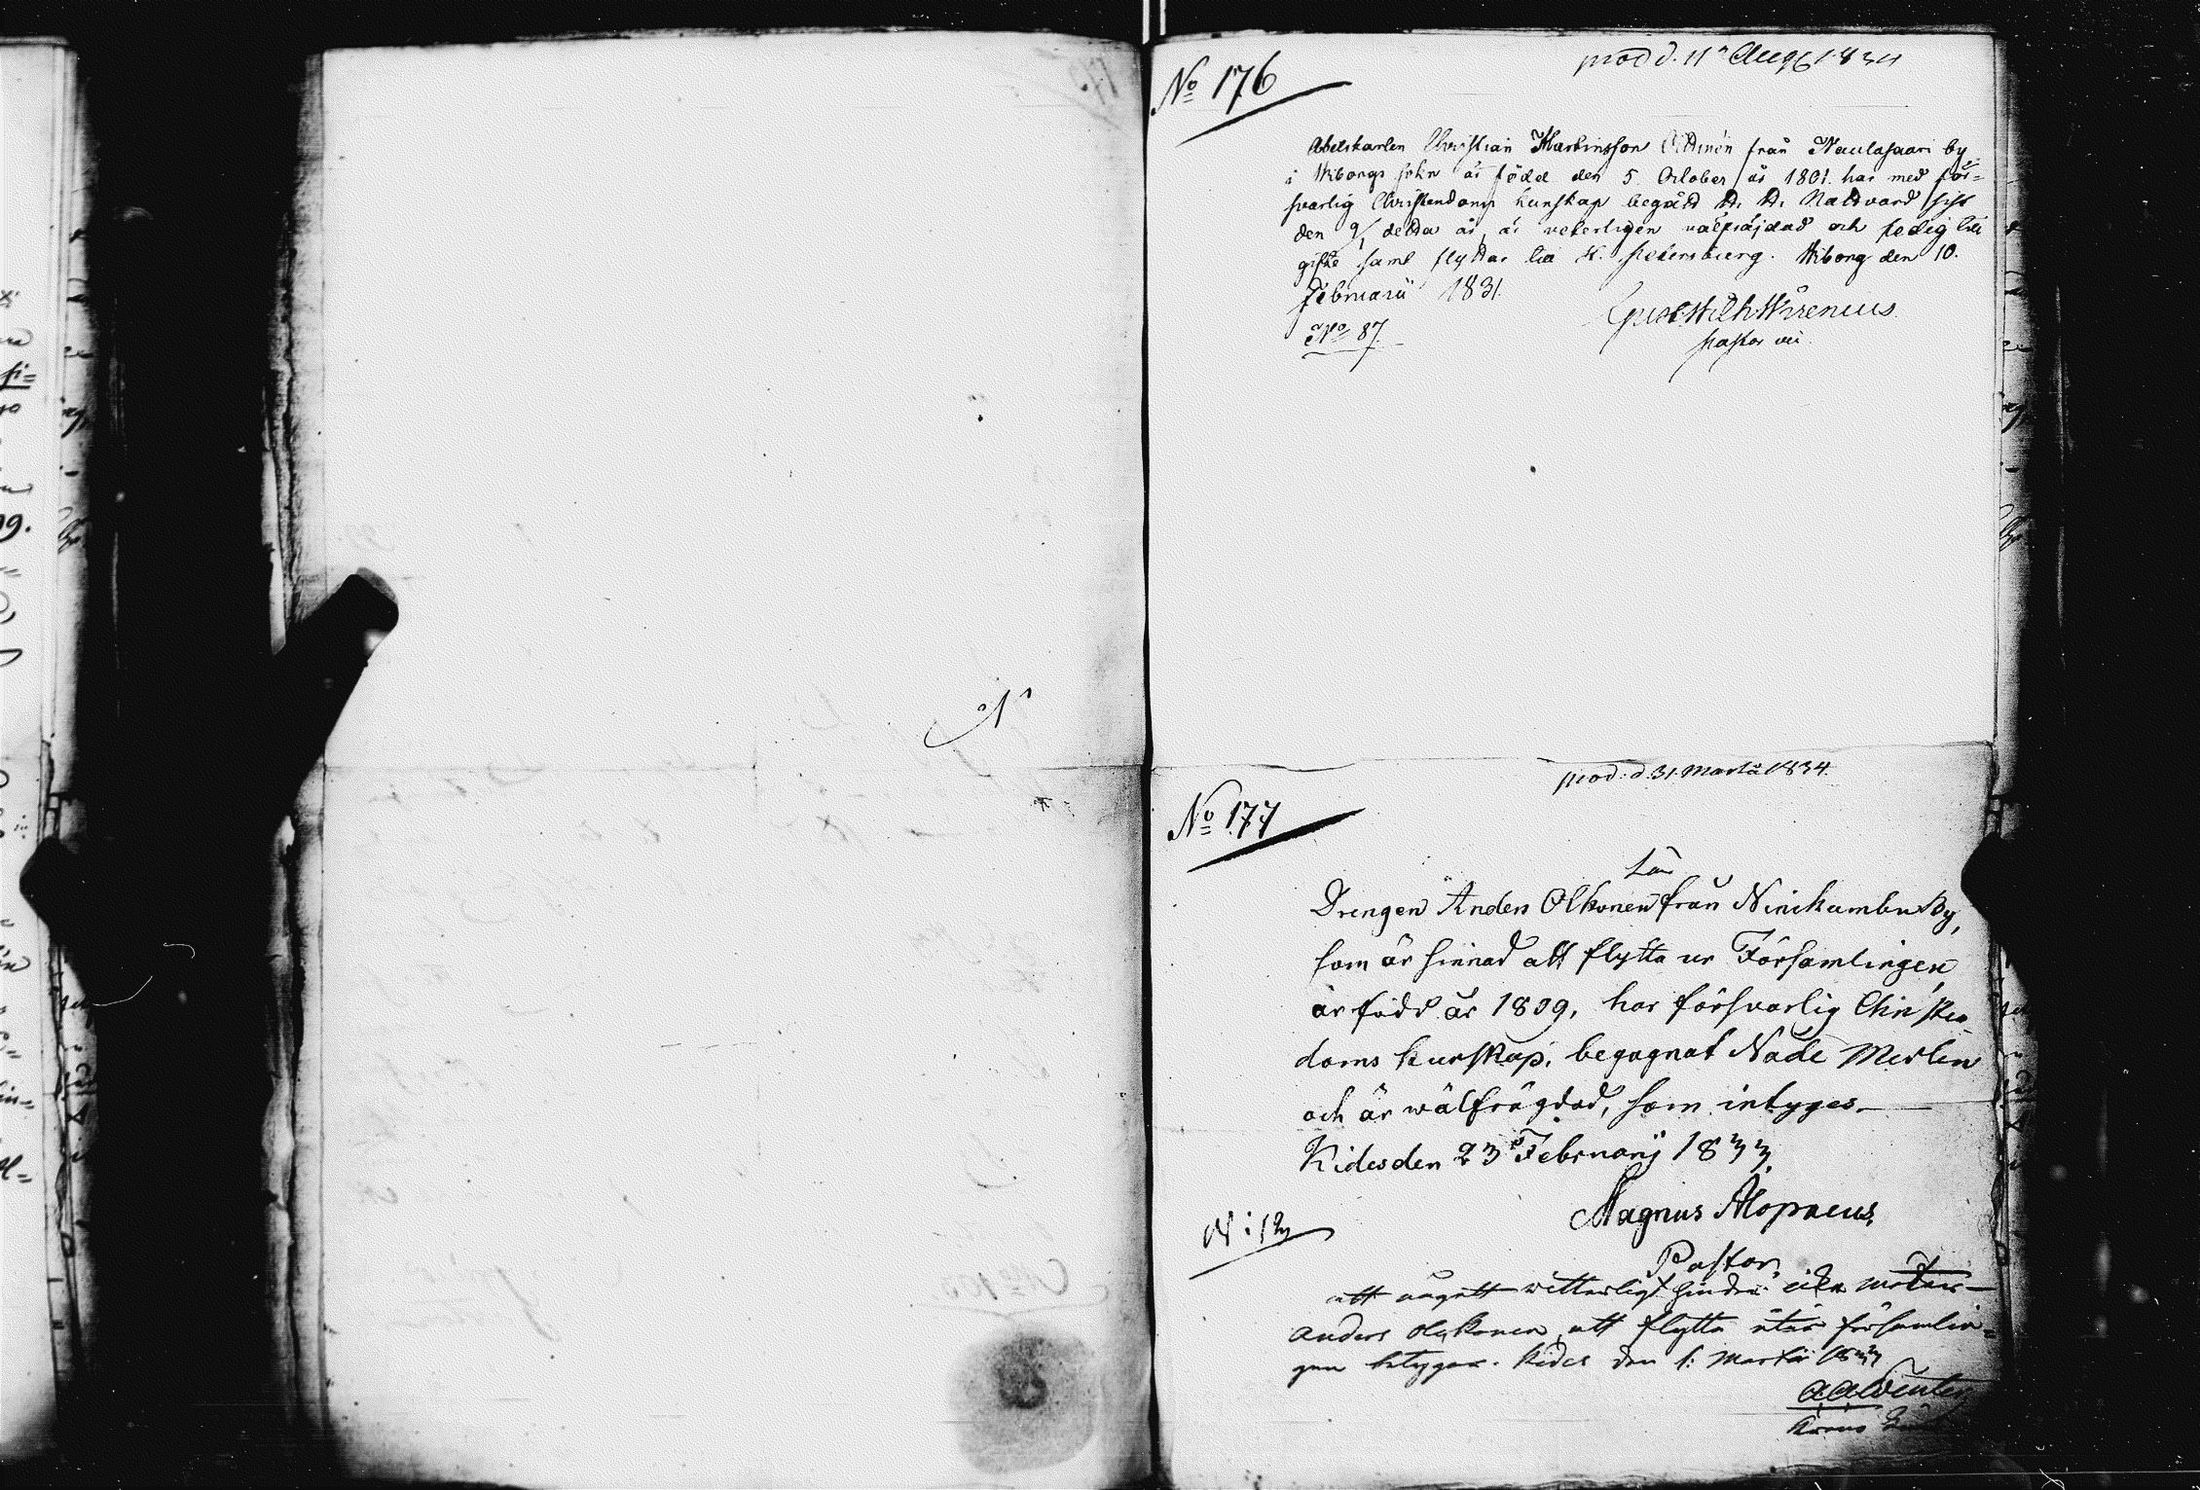 No 176
prod d. 11 Aug 1834
Abetskarlen Christian Martinsson från Naulasaari by
i Wiborgs sokn är född den 5 October år 1801. har med för=
svarlig Christendoms kunskap begådt H. H. Nattvard sist
den 9/1 detta år, är veterligen välfräjdad och ledig till
gifte samt flyttar till St. Petersburg. Wiborg den 10.
Februarii 1831.
Gust. Wilh. Wirenius
pastor vii.
No 87.
prod. d. 31 Martii 1834.
No 177
Drengen Anders Olkonen från Ninikumbu By,
som är sinnad att flytta ur Församlingen,
är född år 1809, har försvarlig Christen
doms kunskap, begagnat Nåde Medlen
och är wälfrägdad, som intyges.
Kides den 23 Februarij 1833.
Magnus Alopaeus,
Pastor
N: 12
att något witterligt hinder icke möter
Anders Olkonen att flytta utur församlin=
gen betygar. Kides den 1: Martii 1833